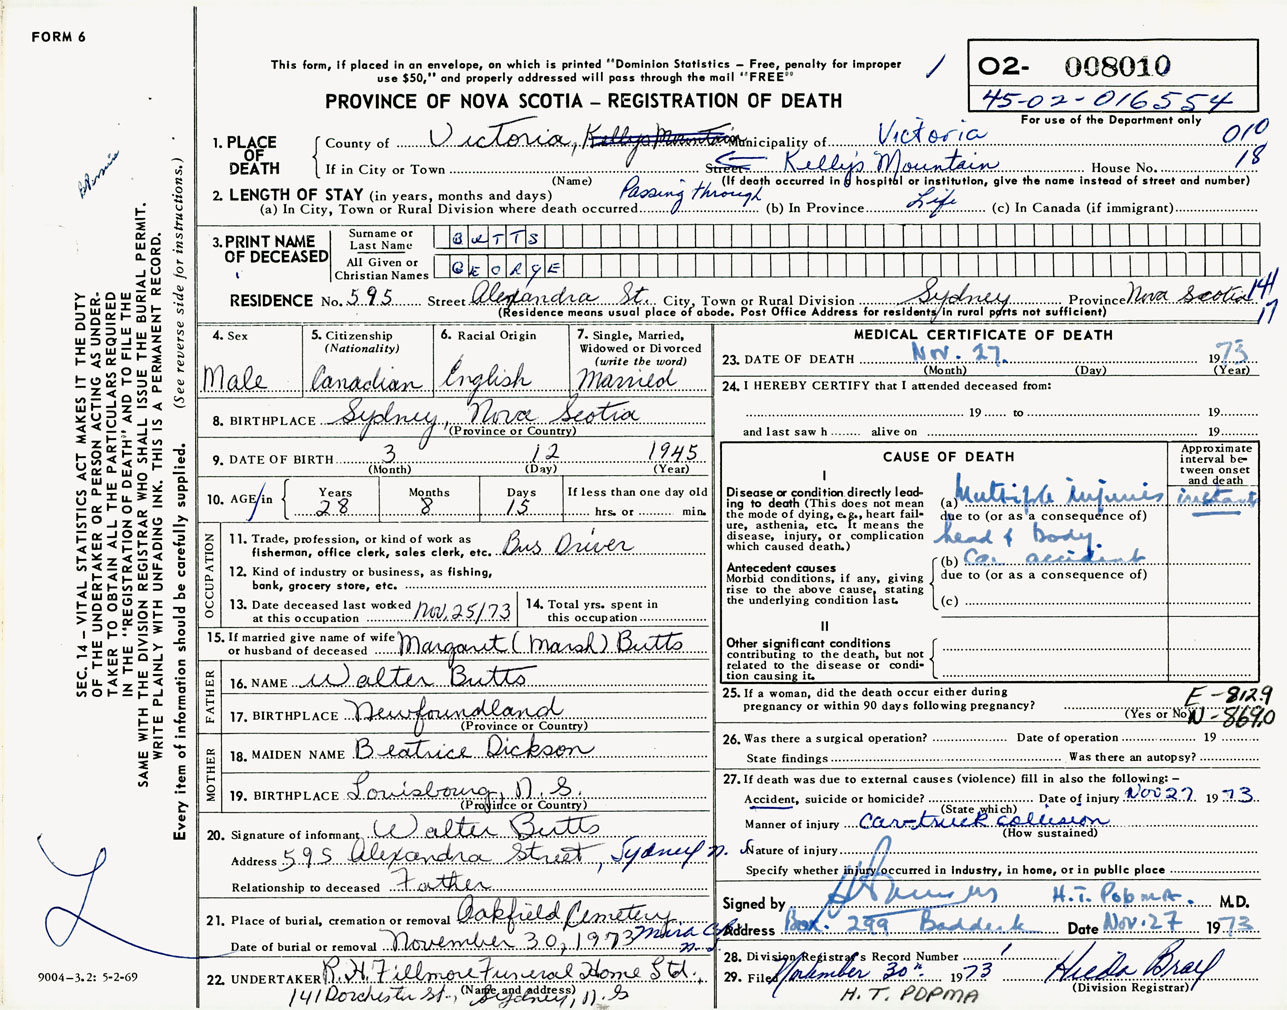 FORM 6
This form, if placed in an envelope, on which is printed "Dominion Statistics – Free, penalty for improper
use $50," and properly addressed will pass through the mail "FREE"
PROVINCE OF NOVA SCOTIA – REGISTRATION OF DEATH
O2- 008010
45-02-016554
For use of the Department only
010
18
1. PLACE OF DEATH
County of Victoria, Kellys Mountain Municipality of Victoria
If in City or Town Street Kelly's Mountain House No.
(Name) (If death occurred in a hospital or institution, give the name instead of street and number)
2. LENGTH OF STAY (in years, months and days)
(a) In City, Town or Rural Division where death occurred Passing through (b) In Province Life (c) In Canada (if immigrant)
3. PRINT NAME OF DECEASED
Surname or Last Name BUTTS
All Given or Christian Names GEORGE
RESIDENCE No. 595 Street Alexandra St. City, Town or Rural Division Sydney Province Nova Scotia
141
17
(Residence means usual place of abode. Post Office Address for residents in rural parts not sufficient)
4. Sex
Male
5. Citizenship
(Nationality)
Canadian
6. Racial Origin
English
7. Single, Married,
Widowed or Divorced
(write the word)
Married
8. BIRTHPLACE Sydney, Nova Scotia
(Province or Country)
9. DATE OF BIRTH 3 12 1945
(Month) (Day) (Year)
10. AGE in
Years 28
Months 8
Days 15
If less than one day old
hrs. or min.
OCCUPATION
11. Trade, profession, or kind of work as
fisherman, office clerk, sales clerk, etc. Bus Driver
12. Kind of industry or business, as fishing,
bank, grocery store, etc.
13. Date deceased last worked
at this occupation Nov. 25/73
14. Total yrs. spent in
this occupation
15. If married give name of wife
or husband of deceased Margaret (Marsh) Butts
FATHER
16. NAME Walter Butts
17. BIRTHPLACE Newfoundland
(Province or Country)
MOTHER
18. MAIDEN NAME Beatrice Dickson
19. BIRTHPLACE Louisbourg, N.S.
(Province or Country)
20. Signature of informant Walter Butts
Address 595 Alexandra Street, Sydney N. S
Relationship to deceased Father
21. Place of burial, cremation or removal Oakfield Cemetery
Date of burial or removal November 30, 1973 Mira
N.S
22. UNDERTAKER R.H. Fillmore Funeral Home Ltd.
(Name and address)
141 Dorchester St., Sydney, N.S
MEDICAL CERTIFICATE OF DEATH
23. DATE OF DEATH Nov. 27. 1973
(Month) (Day) (Year)
24. I HEREBY CERTIFY that I attended deceased from:
19 to 19
and last saw h alive on 19
CAUSE OF DEATH
Approximate interval between onset and death
I
Disease or condition directly leading to death (This does not mean the mode of dying, e.g., heart failure, asthenia, etc. It means the disease, injury, or complication which caused death.)
(a) Multiple injuries instant
due to (or as a consequence of)
head & Body.
Antecedent causes
Morbid conditions, if any, giving rise to the above cause, stating the underlying condition last.
(b) Car accident
due to (or as a consequence of)
(c)
II
Other significant conditions
contributing to the death, but not related to the disease or condition causing it.
25. If a woman, did the death occur either during
pregnancy or within 90 days following pregnancy?
(Yes or No)
E-8129
N-8690
26. Was there a surgical operation? Date of operation 19
State findings Was there an autopsy?
27. If death was due to external causes (violence) fill in also the following:–
Accident, suicide or homicide? Date of injury Nov 27 1973
(State which)
Manner of injury Car-truck collision
(How sustained)
Nature of injury
Specify whether injury occurred in industry, in home, or in public place
Signed by H.T. POPMA. M.D.
Address Box. 299 Baddeck Date Nov. 27 1973
28. Division Registrar's Record Number 1
29. Filed November 30th 1973 Hilda Bray
(Division Registrar)
H. T. POPMA
SEC. 14 – VITAL STATISTICS ACT MAKES IT THE DUTY
OF THE UNDERTAKER OR PERSON ACTING AS UNDER-
TAKER TO OBTAIN ALL THE PARTICULARS REQUIRED
IN THE "REGISTRATION OF DEATH" AND TO FILE THE
SAME WITH THE DIVISION REGISTRAR WHO SHALL ISSUE THE BURIAL PERMIT.
WRITE PLAINLY WITH UNFADING INK. THIS IS A PERMANENT RECORD.
Every item of information should be carefully supplied. (See reverse side for instructions.)
9004–3.2: 5-2-69